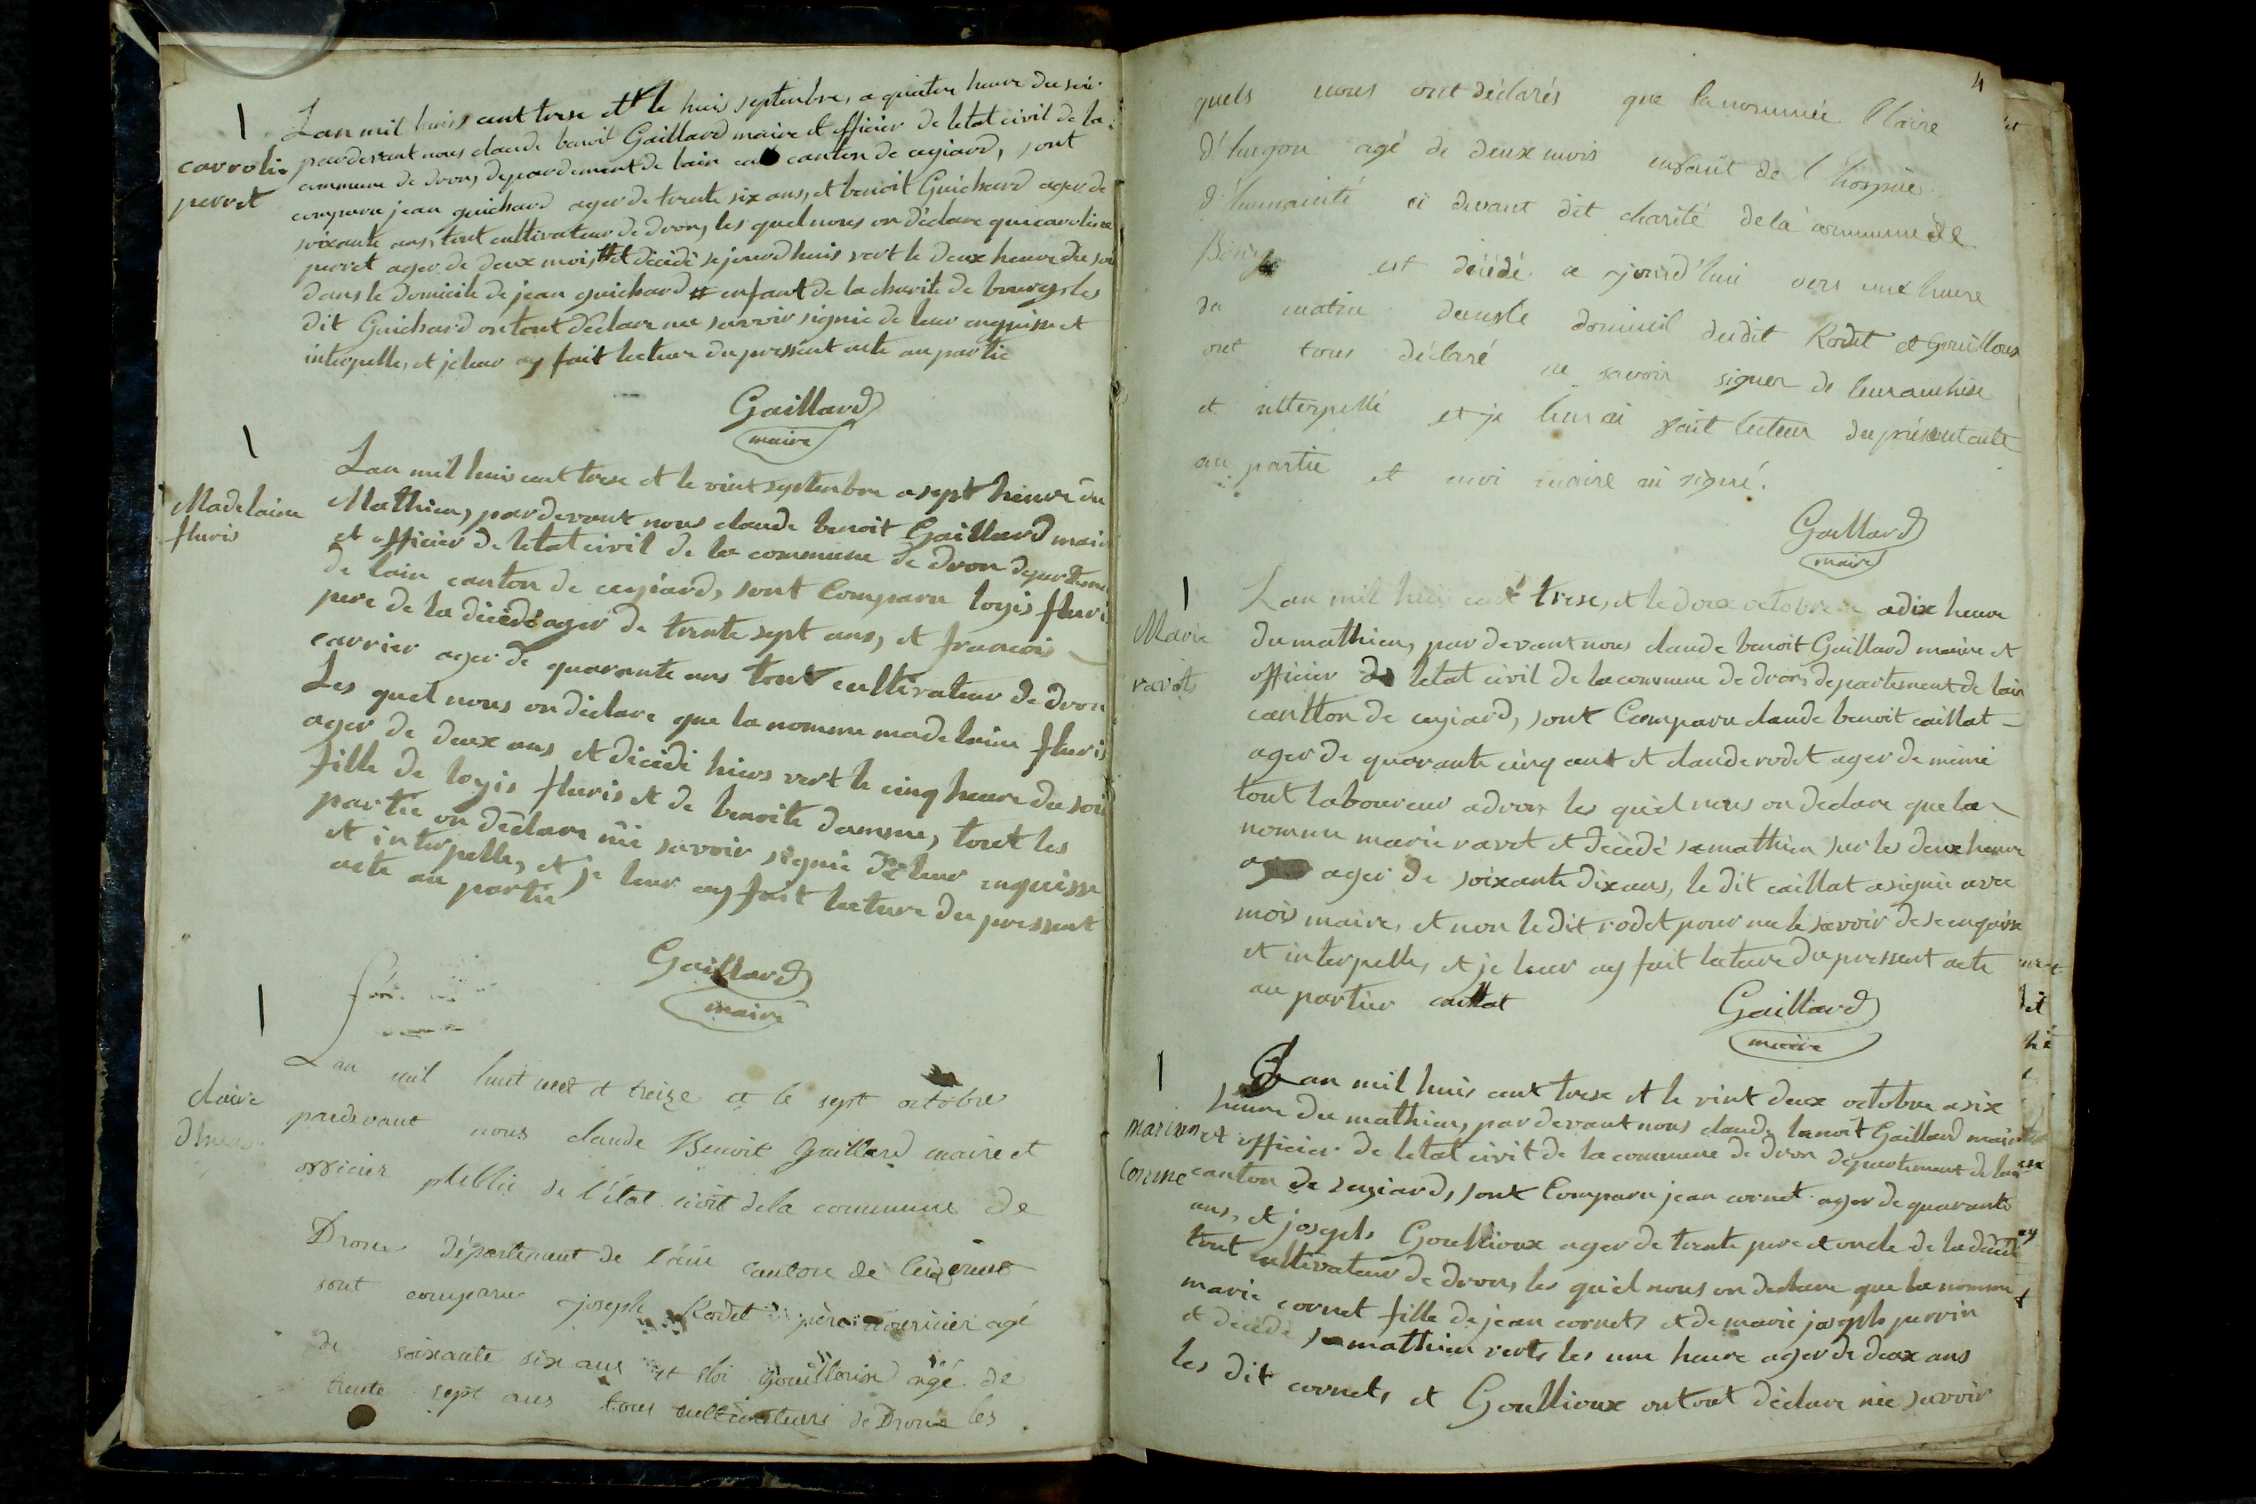 1
carroli
perret
Lan mil huis cent trese et le huis septembre, a quatre heure du soir
pardevant nous claude benoit Gaillard maire et officier de letat civil de la
commune de drons, depardement de lain canton de ceyziard, sont
comparu jean guichard ager de trente six ans, et benoit Guichard ager de
soixante ans, tout cultivateur de drons, les quel nous on déclare que caroline
perret ager de deux mois # et décédé sejourdhuis vert le deux heure du soir
dans le domicile de jean guichard # enfant de la charite de bourg les
dit Guichard on tout déclare ne savoir signie de leur enquisse et
interpelle, et je leur ay fait lecture du pressent acte au partie
Gaillard
maire
1
Madelaine
fluris
Lan mil huis cent trese et le vint septembre a sept heure du
Mathien, pardevant nous claude benoit Gaillard maire
et officier de letat civil de la commune de dron departeme
de lain canton de ceyziard, sont comparu loyis fluri
pere de la décédé ager de trente sept ans, et francois
carrier ager de quarante ans tout cultivateur de dron
Les quel nous on déclare que la nomme madelaine fluris
ager de deux ans et décédé hiers vert le cinq heure du soir
fille de loyis fluris et de benoite damme, tout les
partie on déclare nie savoir signie de leur enquisse
et interpelle, et je leur ay fait lecture du pressent
acte au partie
Gaillard
maire
1
claire
Lan mil huit cent et treize et le sept octobre
pardevant nous claude Benoit gaillard maire et
officier publlic de l'état civil de la commune de
Drons département de l'ain canton de
sont comparus joseph Rodet père nouricier agé
de soixante six ans et Gouilloux agé de
trente sept ans tous cultivateurs de Drons les
4
quels nous ont déclarés que la nommée Claire
agé de deux mois enfant de l'hospice
d'humanité ci devant dit charité de la commune de
Bourg est décédé ajourd'hui vers une heure
du matin dans le domicil du dit Rodet et Gouilloux
ont tous déclaré ne savoir signer de leur
et interpellé et je leur ai fait lecteur du présent acte
au partie et moi maire ai signé.
Gaillard
maire
1
Marie
ravet
Lan mil huis cent trese, et le doux octobre adix heure
du mathien, par devant nous claude benoit Gaillard maire et
officier de letat civil de la commune de drons departement de lain
cantton de ceyziard, sont comparu claude benoit caillat
ager de quarante cinq ant et claude rodet ager de mimi
tout laboureur a drons les quel nous on declare que la
nomme marie ravet et décédé se mathien sur les deux heure
ager de soixante dix ans, le dit caillat a signie avec
mois maire, et non le dit rodet pour ne le savoir de se enquise
et interpelle, et je leur ay fait lecture du pressent acte
au partier caillat
Gaillard
maire
1
marie
Cornne
Lan mil huis cent trese et le vint deux octobre a six
heure du mathien, par devant nous claude benoit Gaillard maire
et officier de letat civit de la commune de dron departement de lain
canton de seyziard, sont comparu jean cornet ager de quarante
ans, et joseph Goullioux ager de trente pere et oncle de la décédé
tout cultivateur de drons, les quel nous on declare que la nomme
marie cornet fille de jean cornets et de marie joseph perrin
et décédé se mathien verts les une heure ager de deux ans
les dit cornets, et Goullioux on tout déclare nie savoir